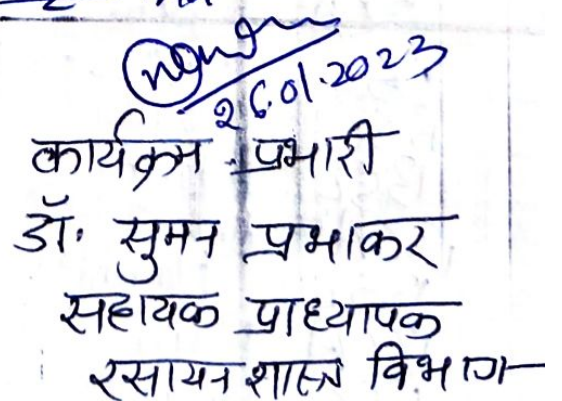 26.01.2023
कार्यक्रम प्रभारी
डॉ. सुमन प्रभाकर
सहायक प्राध्यापक
रसायन शास्त्र विभाग